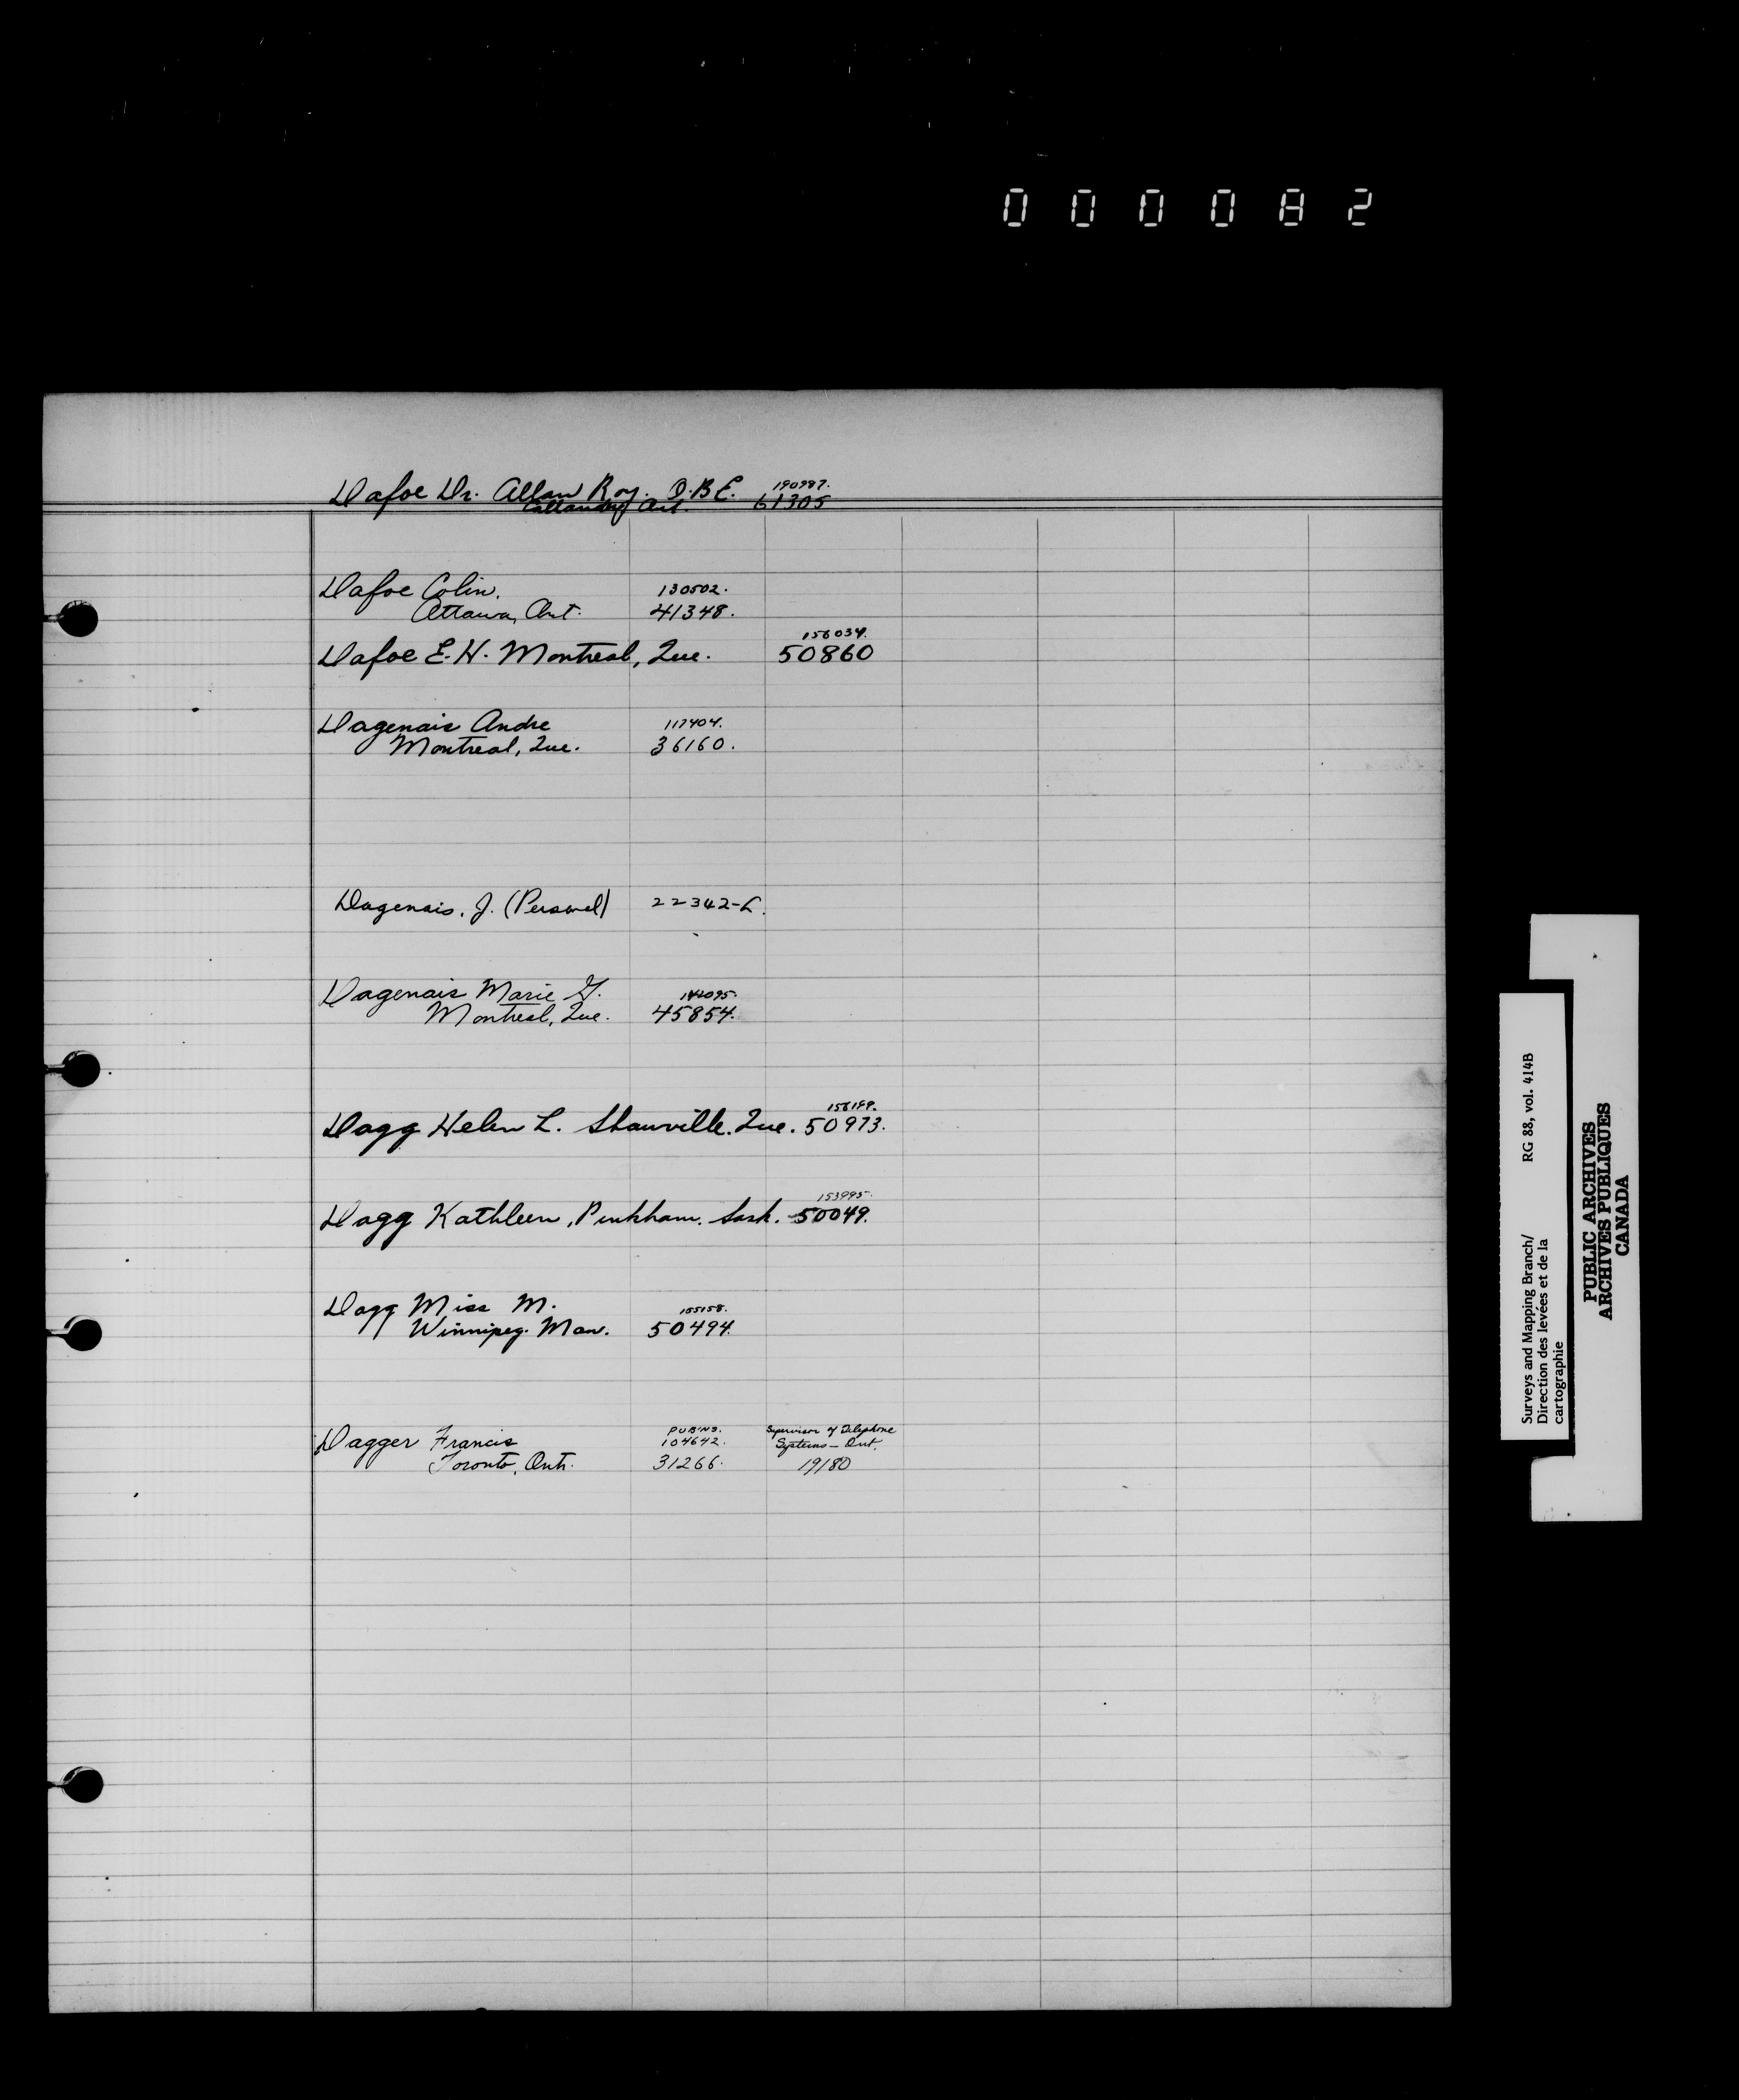 000082
Dafoe Dr. Allan Roy. O.B.E. 190987.
Callander Ont. 61305
Dafoe Colin. 130502.
Ottawa, Ont. 41348.
156034.
Dafoe E. H. Montreal, Que. 50860
Dagenais Andre 117404.
Montreal, Que. 36160.
Dagenais, J. (Personel) 22342-L.
Dagenais Marie G. 142095.
Montreal, Que. 45854.
Dagg Helen L. Shawville. Que. 50973.
153995.
Dagg Kathleen, Pinkham. Sask. 50049.
Dagg Miss M. 155158.
Winnipeg. Man. 50494.
Dagger Francis 104642. Supervisor of Telephone Systems - Ont.
Toronto, Ont. 31266. 19180
Surveys and Mapping Branch/ RG 88, vol. 414B
Direction des levées et de la
cartographie
PUBLIC ARCHIVES
ARCHIVES PUBLIQUES
CANADA